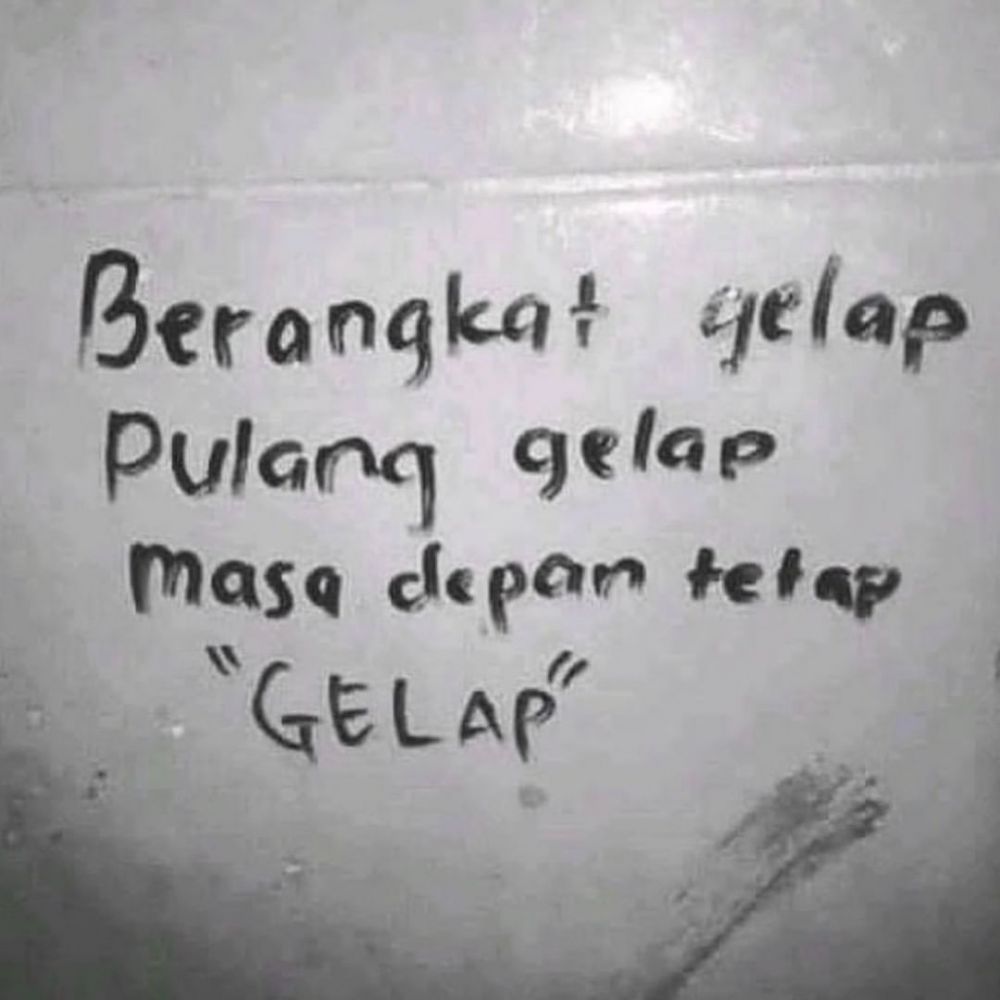 Berangkat gelap
Pulang gelap
masa depan tetap
"GELAP"